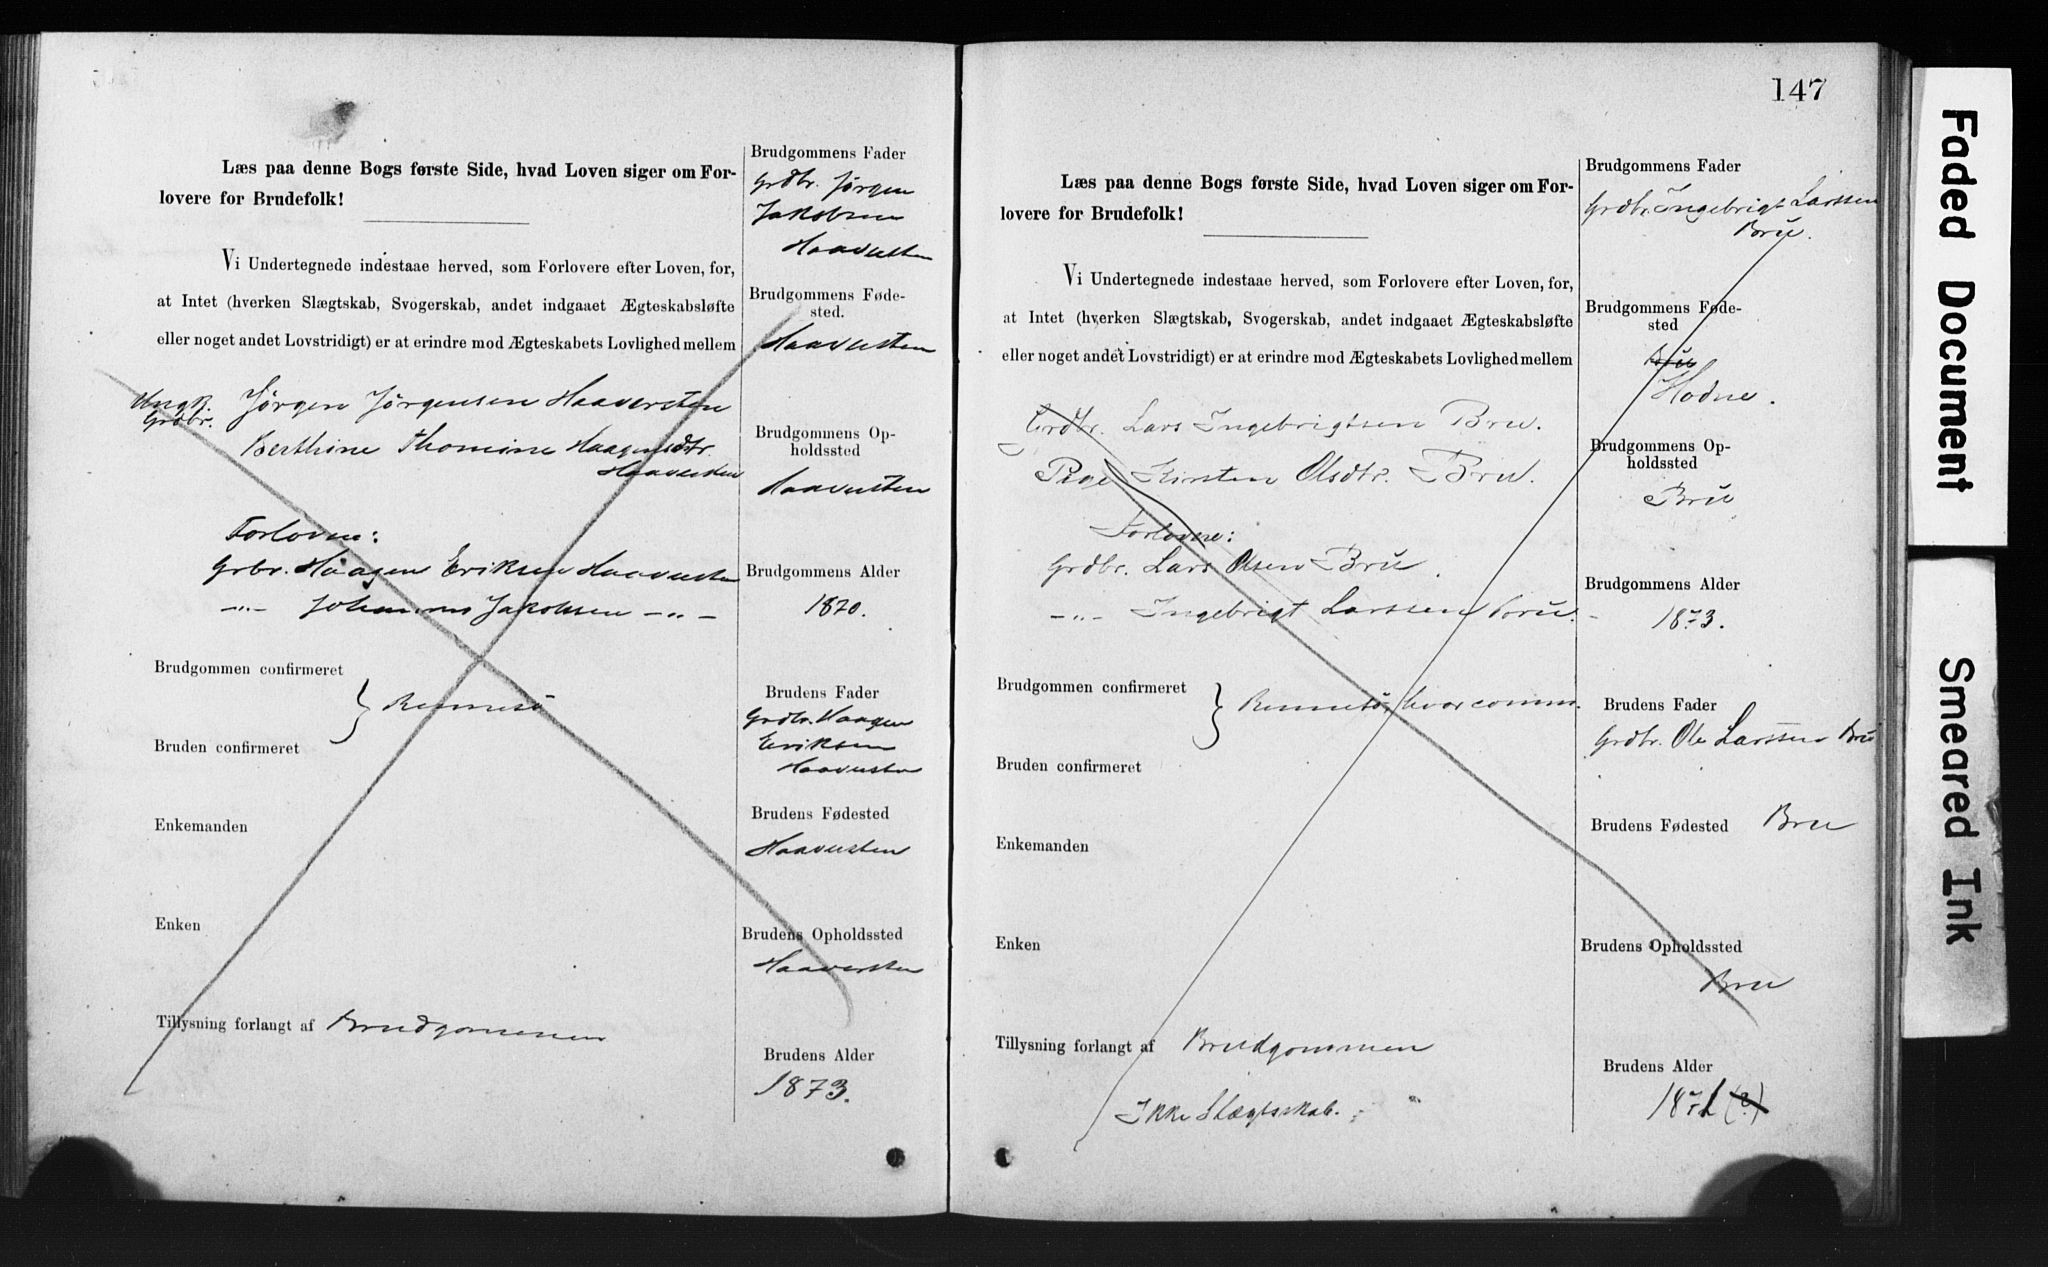 Læs paa denne Bogs første Side, hvad Loven siger om For-
lovere for Brudefolk!
Vi Undertegnede indestaae herved, som Forlovere efter Loven, for,
at Intet (hverken Slægtskab, Svogerskab, andet indgaaet Ægteskabsløfte
eller noget andet Lovstridigt) er at erindre mod Ægteskabets Lovlighed mellem
Ungk.
Grdbr. Jørgen Jørgensen Haaversten
Berthine Thomine Haagensdtr.
Haaversten
Forlovere:
Grbr. Haagen Eriksen Haaversten
-"- Johannes Jakobsen -"-
Brudgommen confirmeret
} Rennesö
Bruden confirmeret
Enkemanden
Enken
Tillysning forlangt af Brudgommen
Brudgommens Fader
Grdbr. Jørgen
Jakobsen
Haaversten
Brudgommens Føde-
sted.
Haaversten
Brudgommens Op-
holdssted
Haaversten
Brudgommens Alder
1870.
Brudens Fader
Grdbr. Haagen
Eriksen
Haaversten
Brudens Fødested
Haaversten
Brudens Opholdssted
Haaversten
Brudens Alder
1873.
147
Læs paa denne Bogs første Side, hvad Loven siger om For-
lovere for Brudefolk!
Vi Undertegnede indestaae herved, som Forlovere efter Loven, for,
at Intet (hverken Slægtskab, Svogerskab, andet indgaaet Ægteskabsløfte
eller noget andet Lovstridigt) er at erindre mod Ægteskabets Lovlighed mellem
Grdbr. Lars Ingebrigtsen Bru.
Pige Kirsten Olsdtr. Bru.
Forlovere:
Grdbr. Lars Olsen Bru.
-"- Ingebrigt Larssen Bru.
Brudgommen confirmeret
} Rennesö, hvor comm.
Bruden confirmeret
Enkemanden
Enken
Tillysning forlangt af Brudgommen
Ikke Slægtsskab.
Brudgommens Fader
Grdbr. Ingebrigt Larssen
Bru.
Brudgommens Føde-
sted
Bru
Hodne.
Brudgommens Op-
holdssted
Bru
Brudgommens Alder
1873.
Brudens Fader
Grdbr. Ole Larssen Bru
Brudens Fødested Bru
Brudens Opholdssted
Bru
Brudens Alder
Faded Document
Smeared Ink